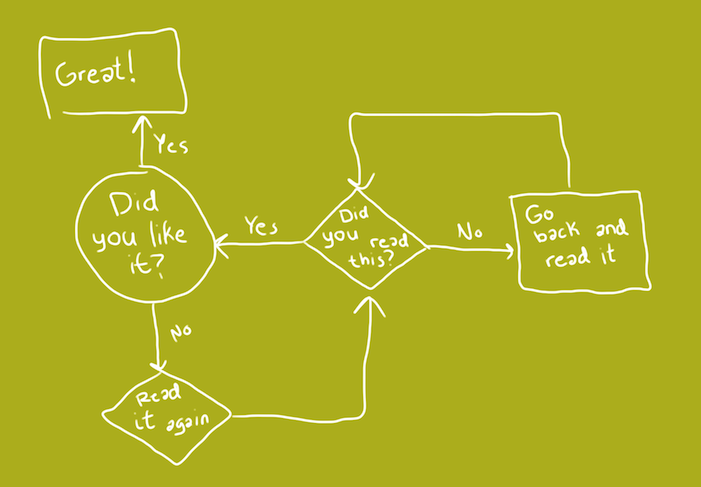 Great!
Yes
Did
you like
it?
Yes
Did
you read
this?
No
Go
back and
read it
No
Read
it again